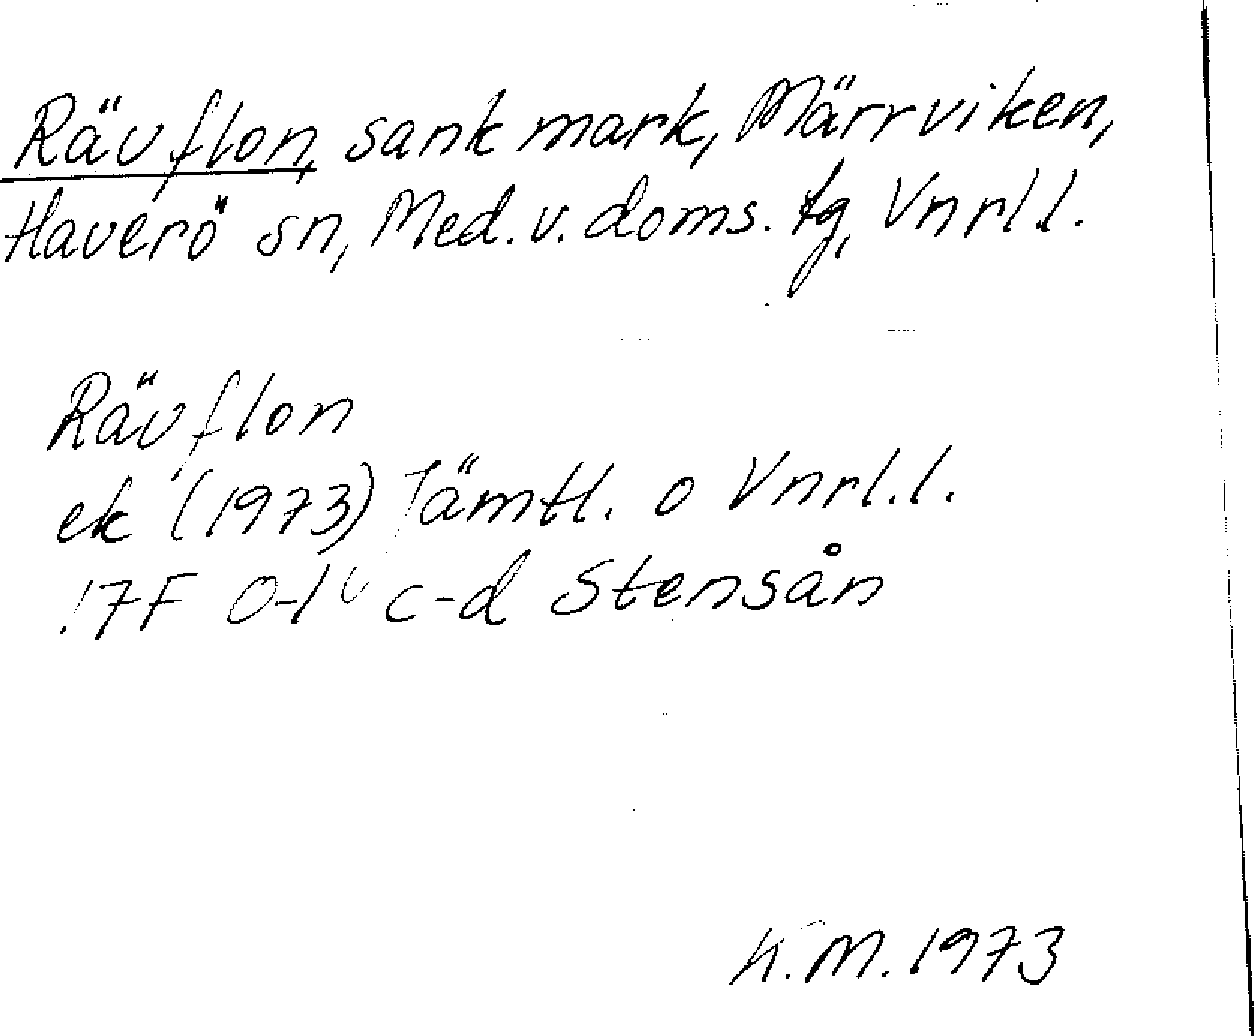 Rävflon, sank mark, Märrviken,
Haverö sn, Med. v. doms. tg, Vnrl l.
Rävflon
ek (1973) Jämtl. o Vnrl. l.
17F 0-1 c-d Stensån
K.M. 1973